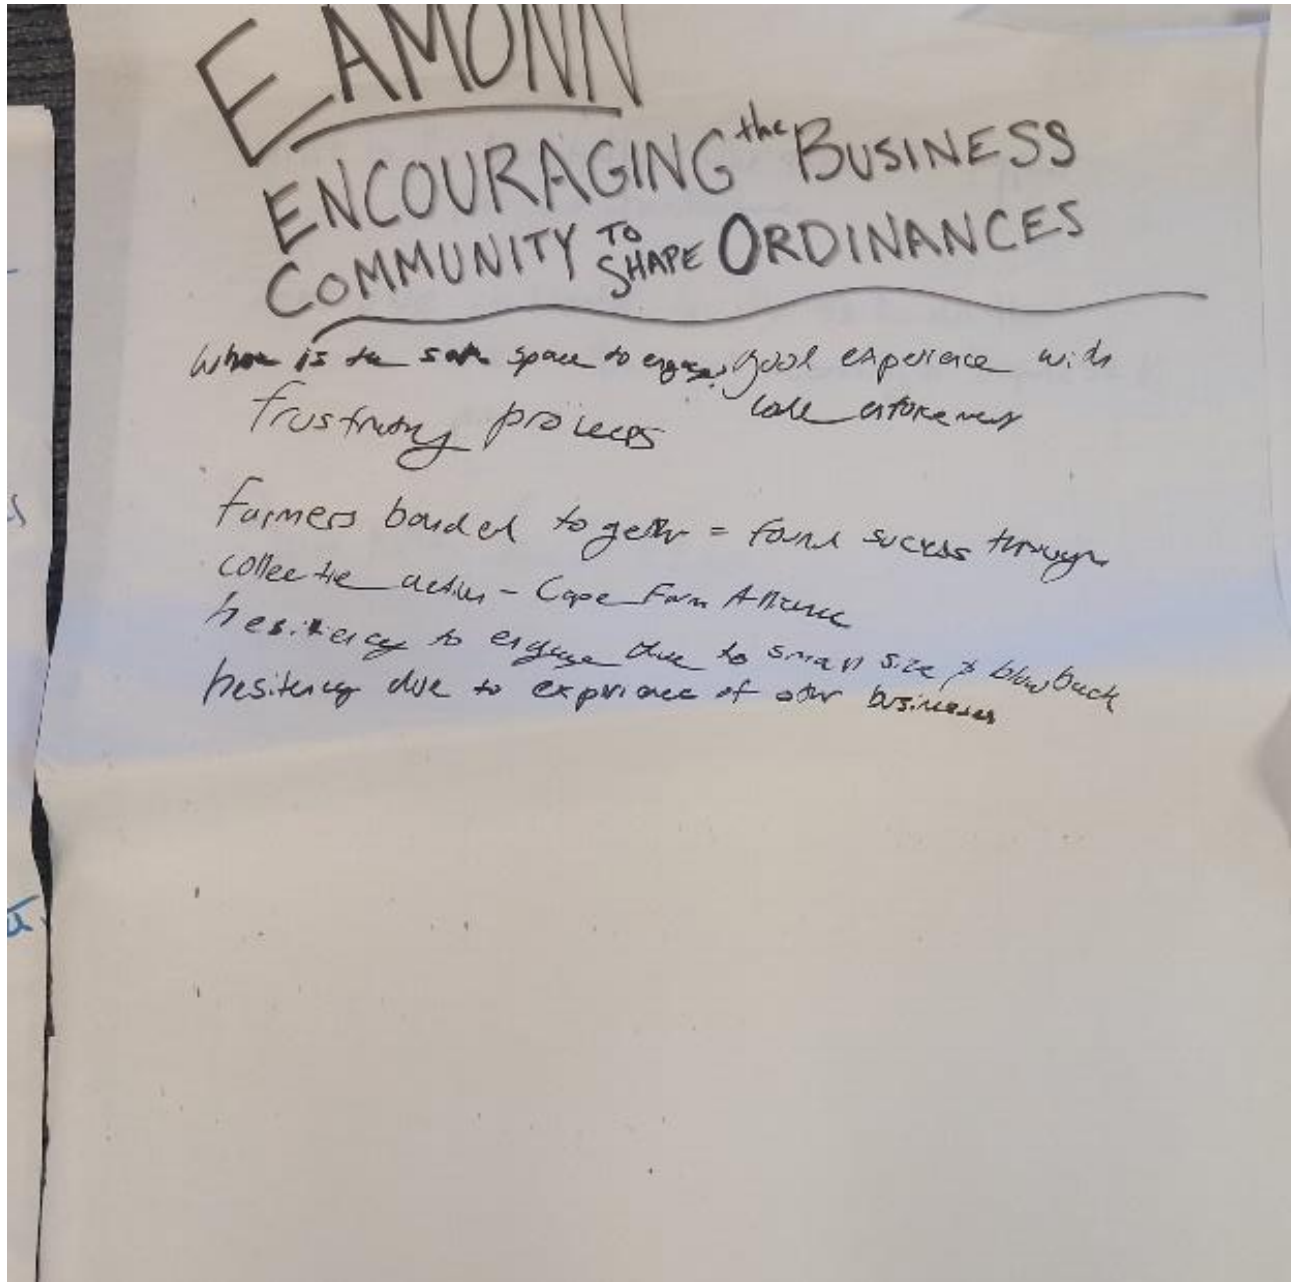 EAMONN
ENCOURAGING the BUSINESS
COMMUNITY TO SHAPE ORDINANCES
Where is the safe space to engage? good experience with
code enforcement
frustrating process
Farmers banded together = found success through
collective action - Cape Farm Alliance
hesitency to engage due to small size & blowback
hesitency due to experience of other businesses